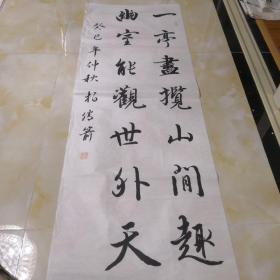 一亭盡攬山間趣
幽室能觀世外天
癸巳年仲秋